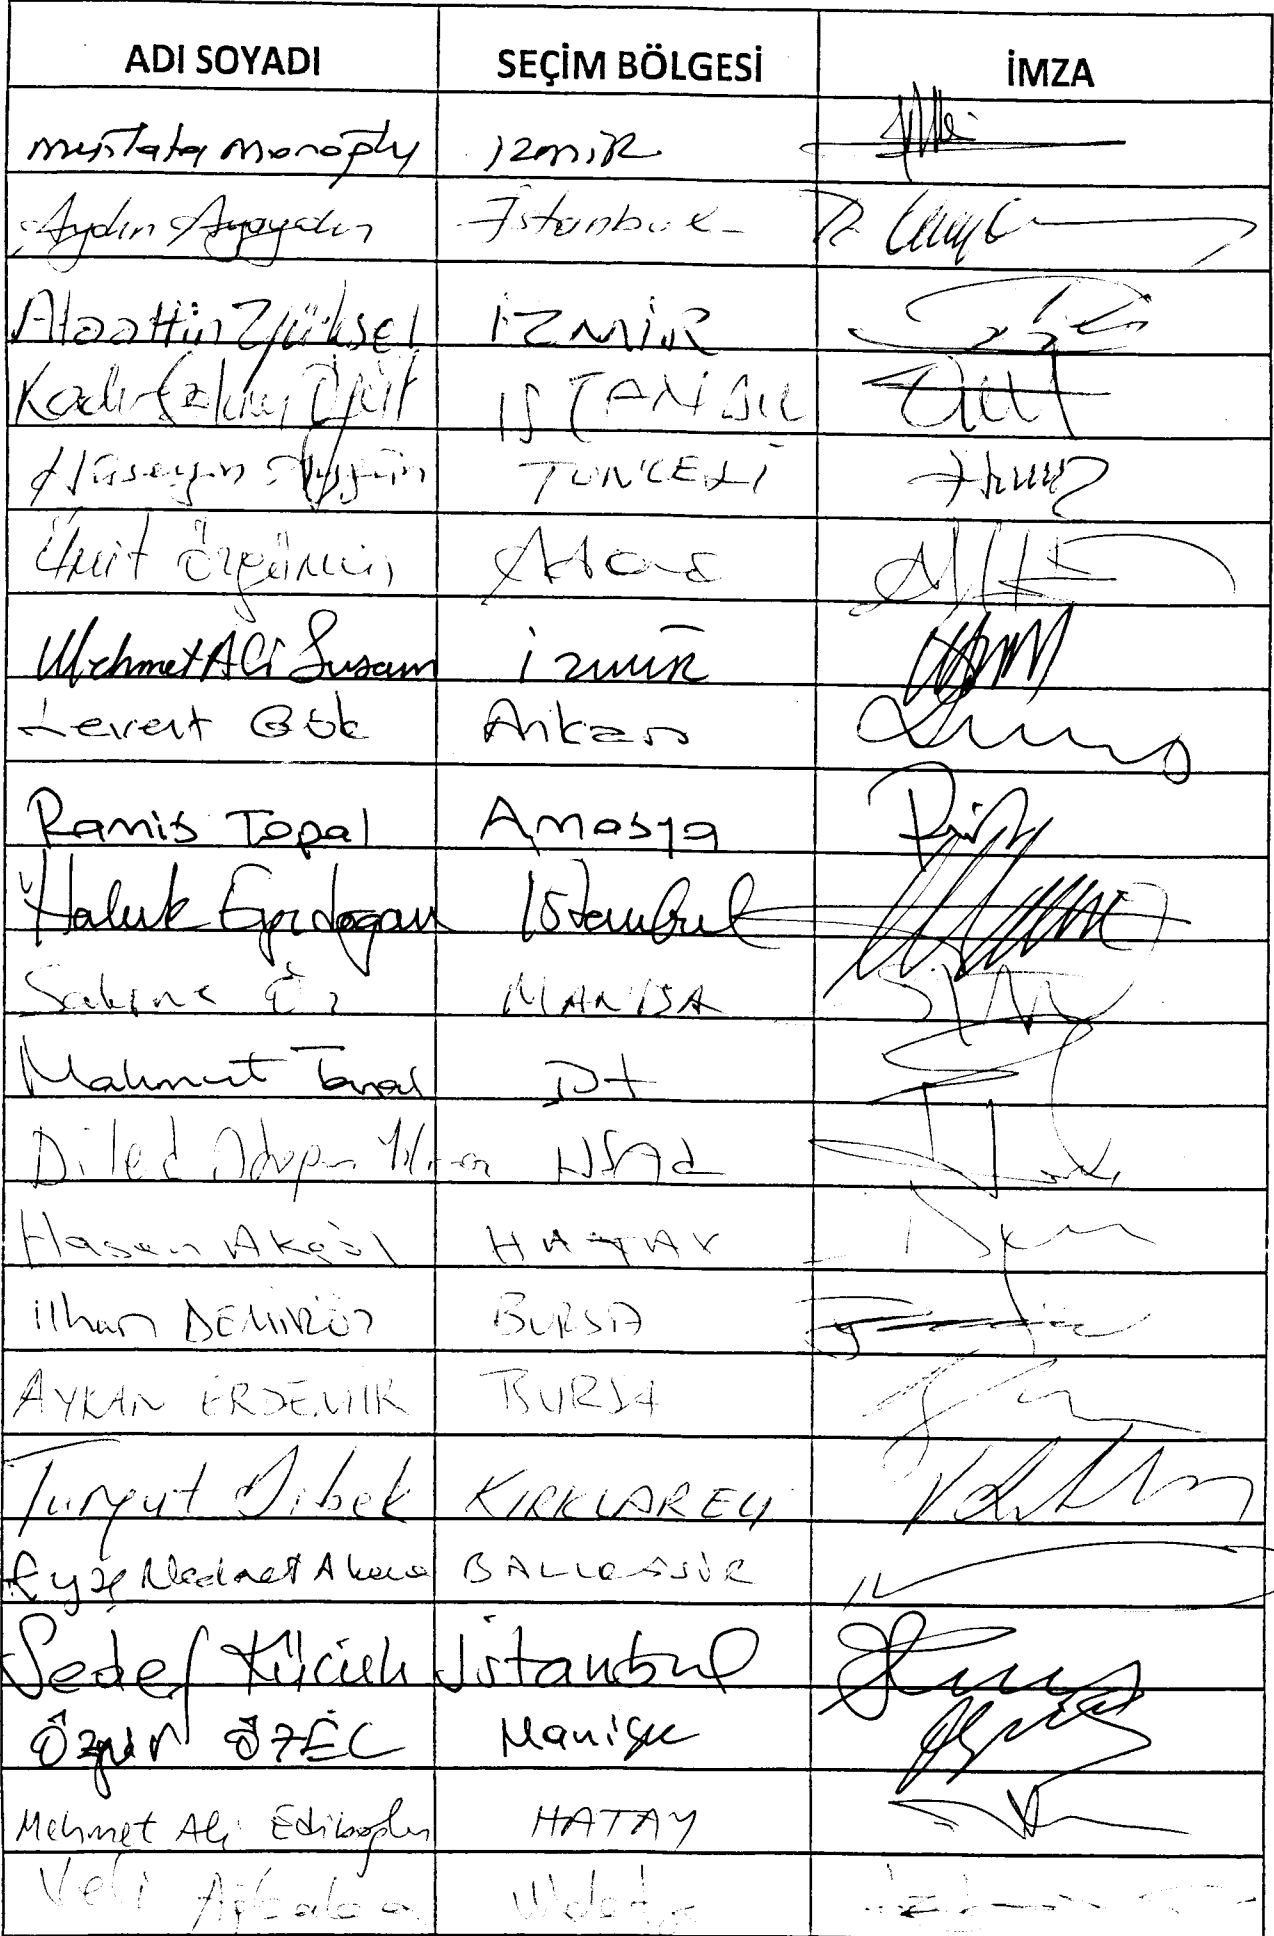 ADI SOYADI SEÇİM BÖLGESİ İMZA
Mustafa Moroğlu İzmir
Aydın Ayaydın İstanbul
Alaattin Yüksel İZMİR
Kadir Gökmen Öğüt İSTANBUL
Hüseyin Aygün TUNCELİ
Ümit Özgümüş Adana
Mehmet Ali Susam İzmir
Levent Gök Ankara
Ramis Topal Amasya
Haluk Eyidoğan İstanbul
Sakine Öz MANİSA
Mahmut Tanal İst
Dilek Akagün Yılmaz UŞAK
Hasan Akgöl HATAY
İlhan DEMİRÖZ BURSA
AYKAN ERDEMİR BURSA
Turgut Dibek KIRKLARELİ
Ayşe Nedret Akova BALIKESİR
Sedef Küçük İstanbul
Özgür ÖZEL Manisa
Mehmet Ali Ediboğlu HATAY
Veli Ağbaba Malatya